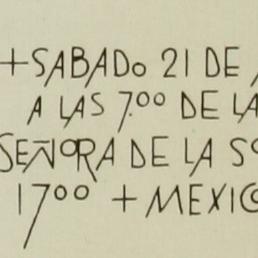 + SABADO 21 DE
A LAS 7.00 DE LA
SEÑORA DE LA
1700 + MEXICO